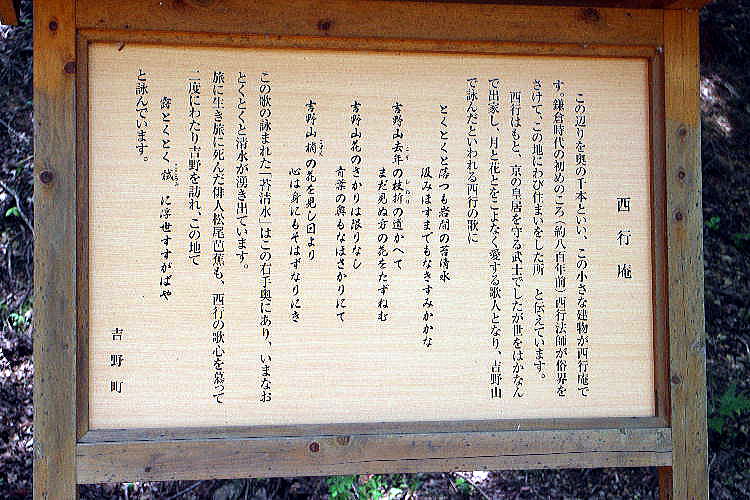 西行庵
この辺りを奥の千本といい、この小さな建物が西行庵で
す。鎌倉時代の初めのころ（約八百年前）西行法師が俗界を
さけて、この地にわび住まいをした所　と伝えています。
西行はもと、京の皇居を守る武士でしたが世をはかなん
で出家し、月と花とをこよなく愛する歌人となり、吉野山
で詠んだといわれる西行の歌に
とくとくと落つる岩間の苔清水
汲みほすまでもなきすみかかな
吉野山去年の枝折の道かへて
まだ見ぬ方の花をたずねむ
吉野山花のさかりは限りなし
青葉の奥もなほさかりにて
吉野山梢の花を見し日より
心は身にもそはずなりにき
この歌の詠まれた「苔清水」はこの右手奥にあり、いまなお
とくとくと清水が湧き出ています。
旅に生き旅に死んだ俳人松尾芭蕉も、西行の歌心を慕って
二度にわたり吉野を訪れ、この地で
露とくとく試に浮世すすがばや
と詠んでいます。
吉野町